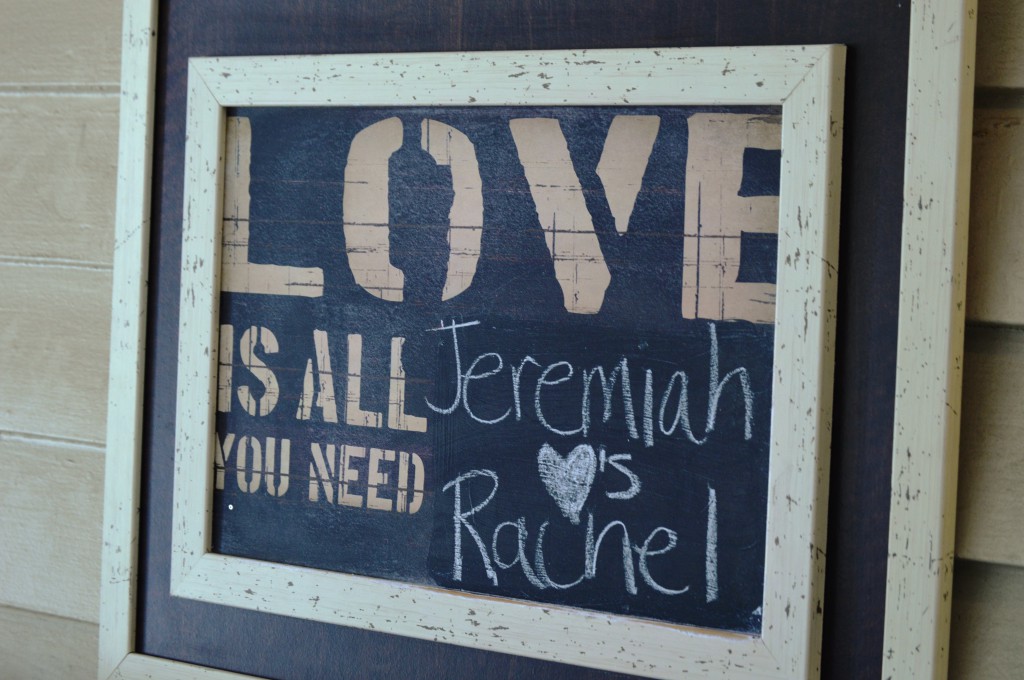 LOVE
IS ALL
YOU NEED
Jeremiah
♥'s
Rachel